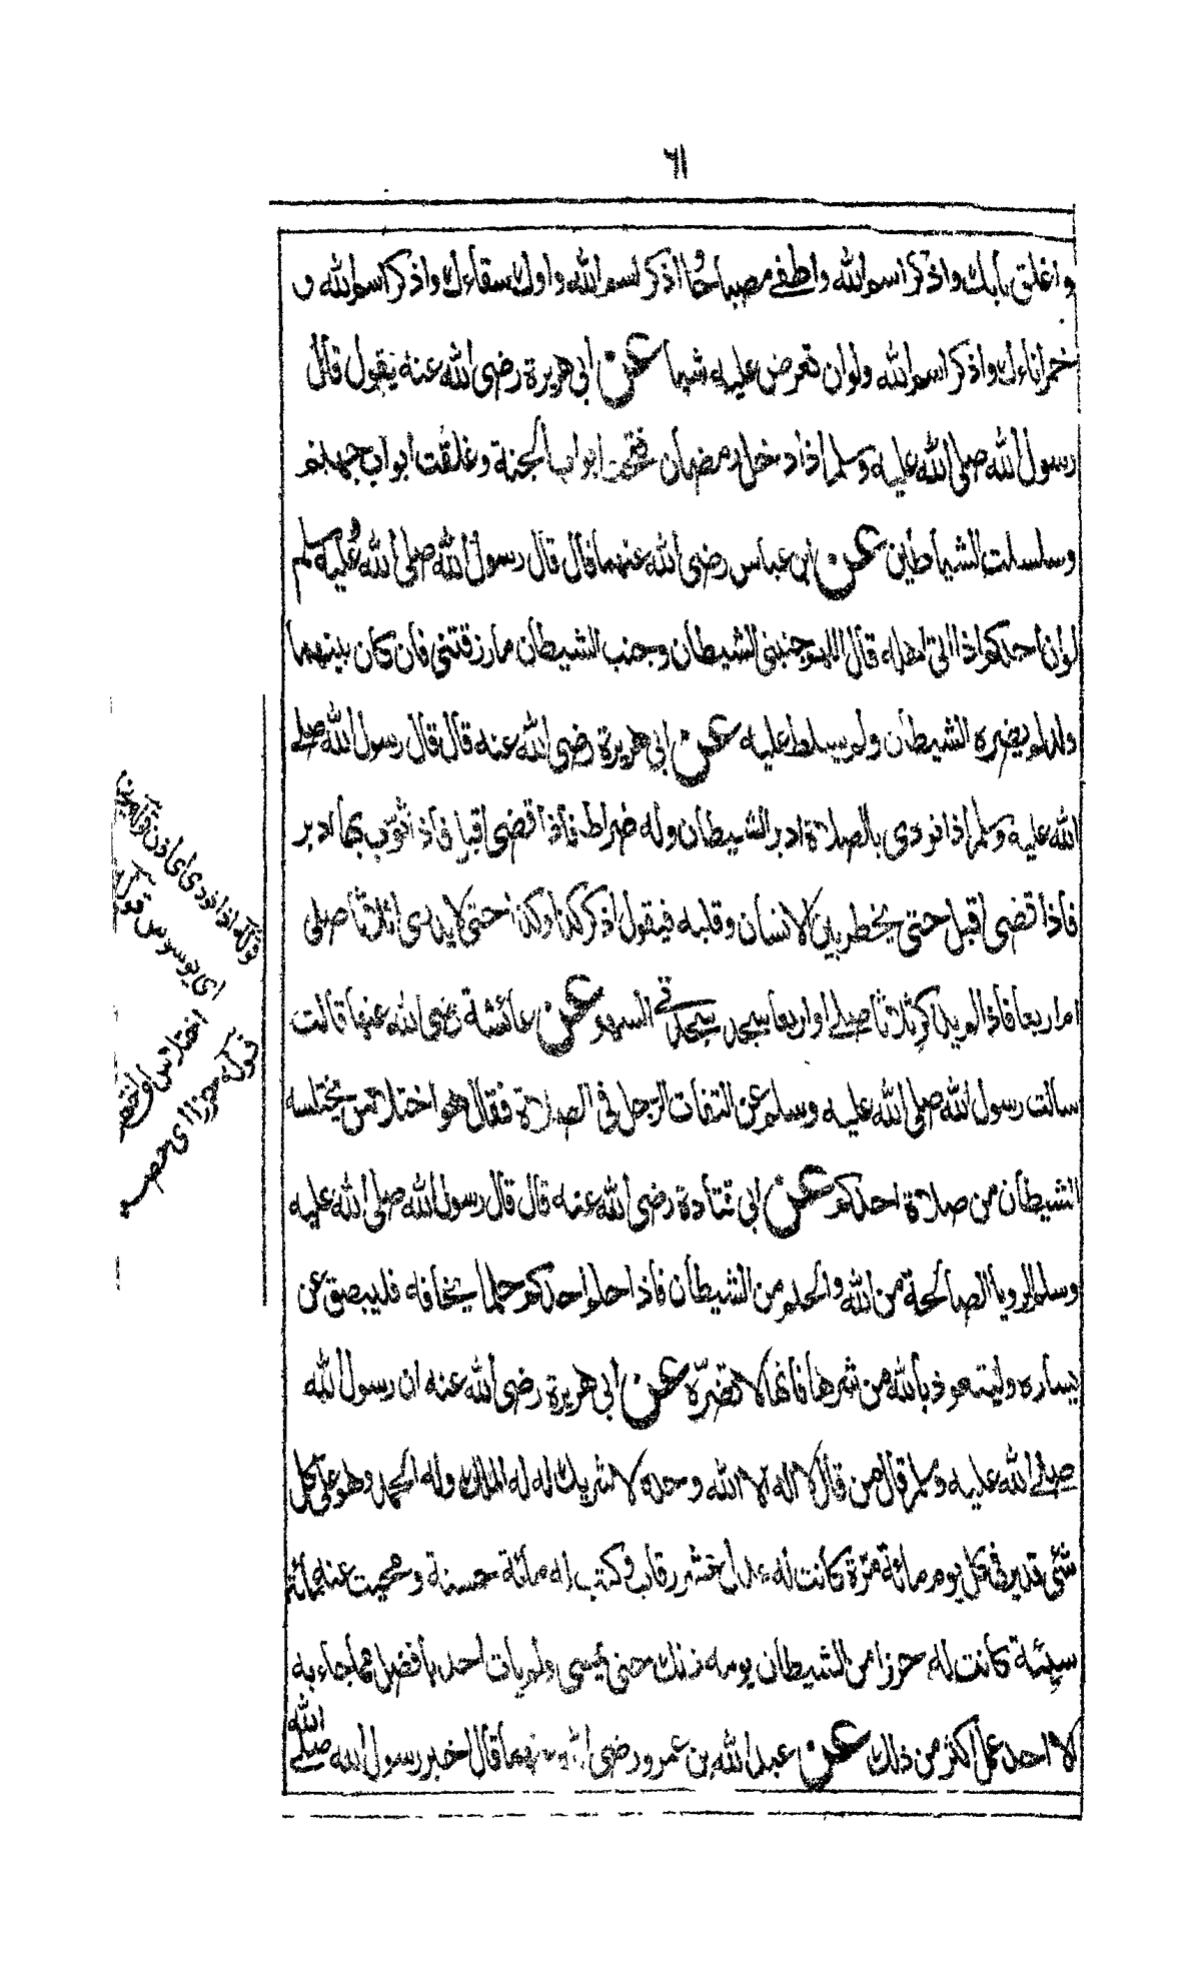 ٦١
واغلق بابك واذكر اسم الله واطفئ مصباحك اذكر اسم الله واوك سقاءك واذكر اسم الله و
خمر اناءك واذكر اسم الله ولو ان تعرض عليه شيأ عن ابي هريرة رضي الله عنه يقول قال
رسول الله صلى الله عليه وسلم اذا دخل رمضان فتحت ابواب الجنة وغلقت ابواب جهنم
وسلسلت الشياطين عن ابن عباس رضي الله عنهما قال قال رسول الله صلى الله عليه وسلم
لو ان احدكم اذا اتى اهله قال اللهم جنبني الشيطان وجنب الشيطان ما رزقتني فان كان بينهما
ولد لم يضره الشيطان ولم يسلط عليه عن ابي هريرة رضي الله عنه قال قال رسول الله صلى
الله عليه وسلم اذا نودي بالصلاة ادبر الشيطان وله ضراط فاذا قضي اقبل فاذا ثوّب بها ادبر
فاذا قضي اقبل حتى يخطر بين الانسان وقلبه فيقول اذكر كذا وكذا حتى لا يدري اثلاثا صلى
ام اربعا فاذا لم يدر كم ثلاثا صلى او اربعا سجد سجدتي السهو عن عائشة رضي الله عنها قالت
سالت رسول الله صلى الله عليه وسلم عن التفات الرجل في الصلاة فقال هو اختلاس يختلسه
الشيطان من صلاة احدكم عن ابي قتادة رضي الله عنه قال قال رسول الله صلى الله عليه
وسلم الرويا الصالحة من الله والحلم من الشيطان فاذا حلم احدكم حلما يخافه فليبصق عن
يساره وليتعوذ بالله من شرها فانها لا تضرّه عن ابي هريرة رضي الله عنه ان رسول الله
صلى الله عليه وسلم قال من قال لا اله الا الله وحده لا شريك له له الملك وله الحمد وهو على كل
شئ قدير في كل يوم مائة مرّة كانت له عدل عشر رقاب وكتب له مائة حسنة ومحيت عنه مائة
سيئة كانت له حرزا من الشيطان يومه ذلك حتى يمسي ولم يات احد بافضل مما جاء به
الا احد عمل اكثر من ذلك عن عبد الله بن عمرو رضي الله عنهما قال اخبر رسول الله صلى الله
قوله اذا نودي اي اذن قوله حين
اي يوسوس قوله
اختلاس اي
قوله حرزا اي حصن